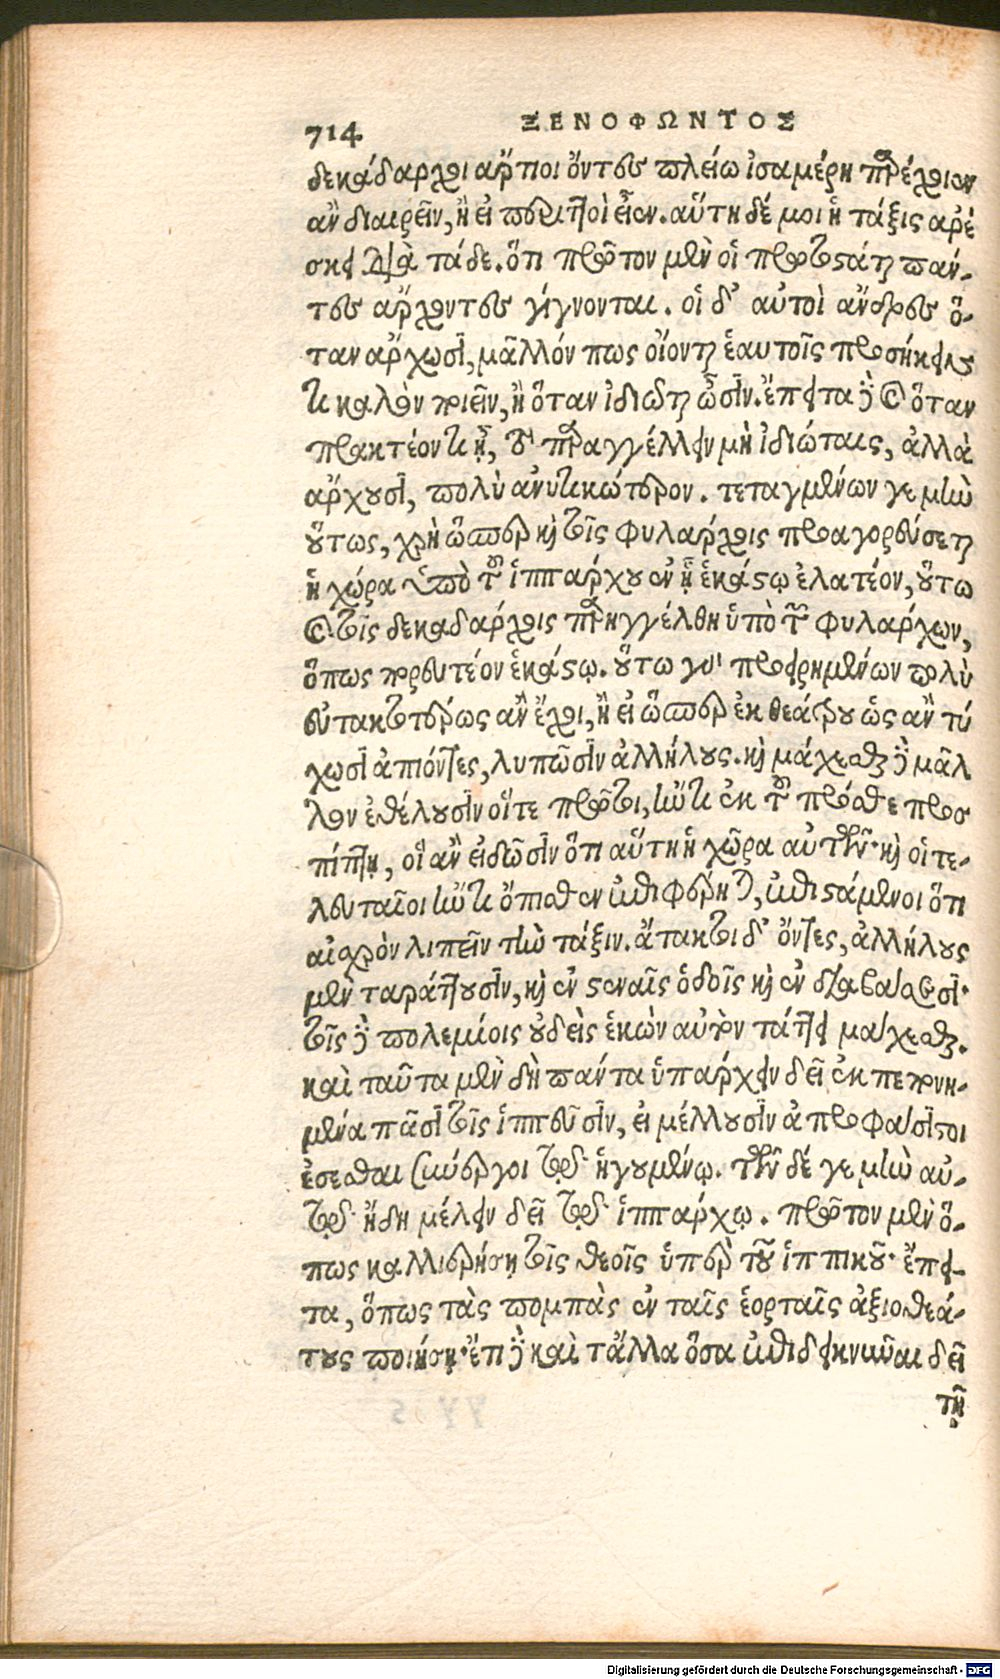 714 ΞΕΝΟΦΩΝΤΟΣ
δεκάδαρχοι ἄρτιοι ὄντες πλείω ἰσαμέρη παρέχοιεν
ἂν διαιρεῖν, ἢ εἰ περιττοὶ εἶεν. αὕτη δέ μοι ἡ τάξις ἀρέ
σκει διὰ τάδε. ὅτι πρῶτον μὲν οἱ πρωτοστάται πάν-
τες ἄρχοντες γίγνονται. οἱ δ' αὐτοὶ ἄνδρες ὅ-
ταν ἄρχωσι, μᾶλλόν πως οἴονται ἑαυτοῖς προσήκειν
τι καλὸν ποιεῖν, ἢ ὅταν ἰδιῶται ὦσιν. ἔπειτα δὲ καὶ ὅταν
πρακτέον τι ᾖ, τὸ παραγγέλλειν μὴ ἰδιώταις, ἀλλὰ
ἄρχουσι, πολὺ ἀνυτικώτερον. τεταγμένων γε μὴν
οὕτως, χρὴ ὥσπερ καὶ τοῖς φυλάρχοις προαγορεύεται
ἡ χώρα ὑπὸ τοῦ ἱππάρχου ἐν ᾗ ἑκάστῳ ἐλατέον, οὕτω
καὶ τοῖς δεκαδάρχοις παρηγγέλθη ὑπὸ τῶν φυλάρχων,
ὅπως πορευτέον ἑκάστῳ. οὕτω γὰρ προειρημένων πολὺ
εὐτακτοτέρως ἂν ἔχοι, ἢ εἰ ὥσπερ ἐκ θεάτρου ὡς ἂν τύ
χωσι ἀπιόντες, λυπῶσιν ἀλλήλους. καὶ μάχεσθαι δὲ μᾶλ
λον ἐθέλουσιν οἵ τε πρῶτοι, ἤν τι ἐκ τοῦ πρόσθε προσ
πίπτῃ, οἳ ἂν εἰδῶσιν ὅτι αὕτη ἡ χῶρα αὐτῶν· καὶ οἱ τε-
λευταῖοι ἤν τι ὄπισθεν ἐπιφέρηται, ἐπιστάμενοι ὅτι
αἰσχρὸν λιπεῖν τὴν τάξιν. ἄτακτοι δ' ὄντες, ἀλλήλους
μὲν ταράττουσιν, καὶ ἐν στεναῖς ὁδοῖς καὶ ἐν διαβάσεσι·
τοῖς δὲ πολεμίοις οὐδεὶς ἑκὼν αὑτὸν τάττει μάχεσθαι.
καὶ ταῦτα μὲν δὴ πάντα ὑπάρχειν δεῖ ἐκπεπονη-
μένα πᾶσι τοῖς ἱππεῦσιν, εἰ μέλλουσιν ἀπροφάσιστοι
ἔσεσθαι συνεργοὶ τῷ ἡγουμένῳ. τῶν δέ γε μὴν αὐ-
τῷ ἤδη μέλειν δεῖ τῷ ἱππάρχῳ. πρῶτον μὲν ὅ-
πως καλλιερήσῃ τοῖς θεοῖς ὑπὲρ τοῦ ἱππικοῦ· ἔπει-
τα, ὅπως τὰς πομπὰς ἐν ταῖς ἑορταῖς ἀξιοθεά-
τους ποιήσῃ· ἔτι δὲ καὶ τἄλλα ὅσα ἐπιδεικνύναι δεῖ
τῇ
Digitalisierung gefördert durch die Deutsche Forschungsgemeinschaft - DFG